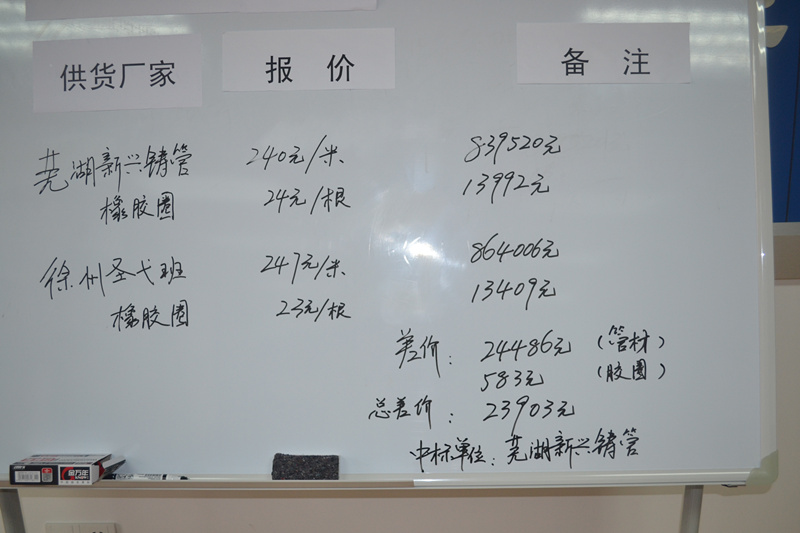 供货厂家 报价 备注
芜湖新兴铸管 240元/米 839520元
橡胶圈 24元/根 13992元
徐州圣戈班 247元/米 864006元
橡胶圈 23元/根 13409元
差价: 24486元 (管材)
583元 (胶圈)
总差价: 23903元
中标单位: 芜湖新兴铸管
金万年